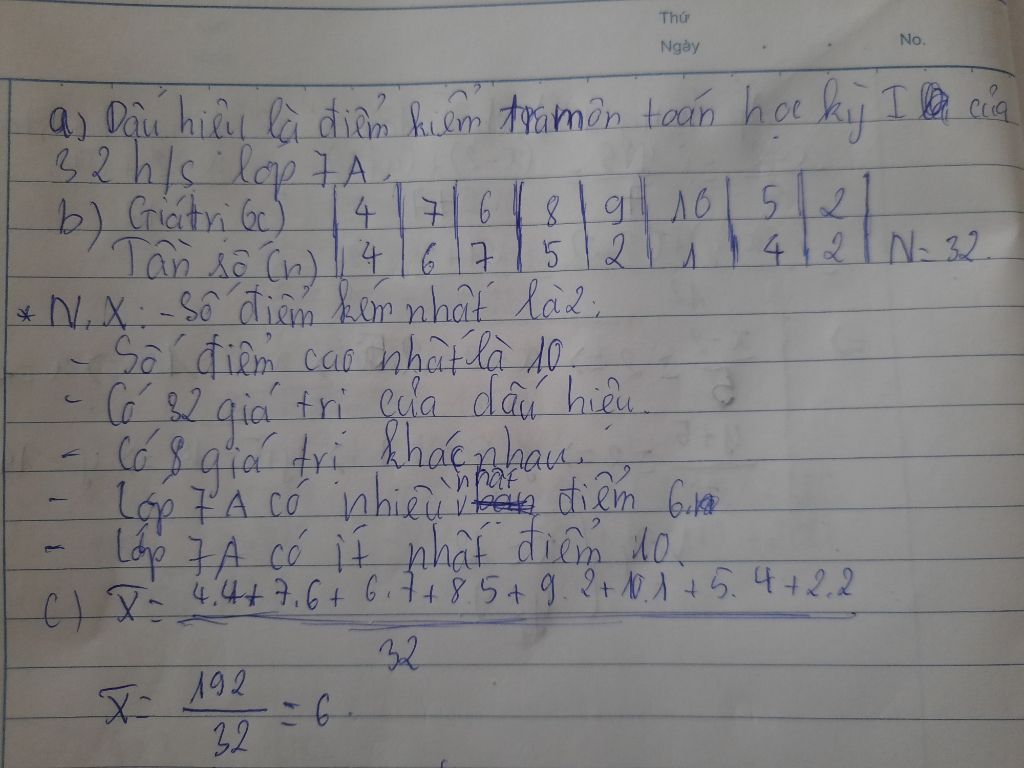 Thứ
Ngày . . No.
a) Dấu hiệu là điểm kiểm tra môn toán học kỳ I của
32 h/s lớp 7A.
b) Giá trị (x) | 4 | 7 | 6 | 8 | 9 | 10 | 5 | 2 |
Tần số (n) | 4 | 6 | 7 | 5 | 2 | 1 | 4 | 2 | N = 32.
* N.X: - Số điểm kém nhất là 2;
- Số điểm cao nhất là 10.
- Có 32 giá trị của dấu hiệu.
- Có 8 giá trị khác nhau.
- Lớp 7A có nhiều nhất điểm 6.
- Lớp 7A có ít nhất điểm 10.
c) X̅ = 4.4 + 7.6 + 6.7 + 8.5 + 9.2 + 10.1 + 5.4 + 2.2
32
X̅ = 192 = 6.
32